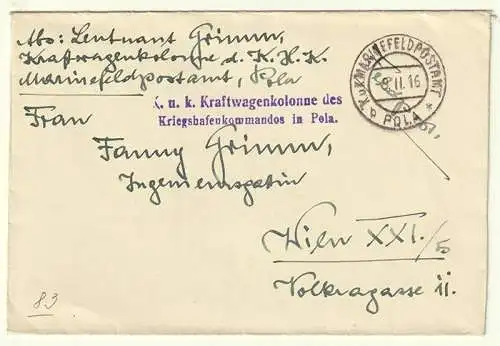 Abs: Leutnant Grimm,
Kraftwagenkolonne d. K. H. K.
Marinefeldpostamt, Pola
K. u. K. MARINEFELDPOSTAMT
8 II. 16
b POLA *
K. u. k. Kraftwagenkolonne des
Kriegshafenkommandos in Pola.
Frau
Fanny Grimm,
Ingenieursgattin
Wien XXI./5
Volkragasse 11.
83